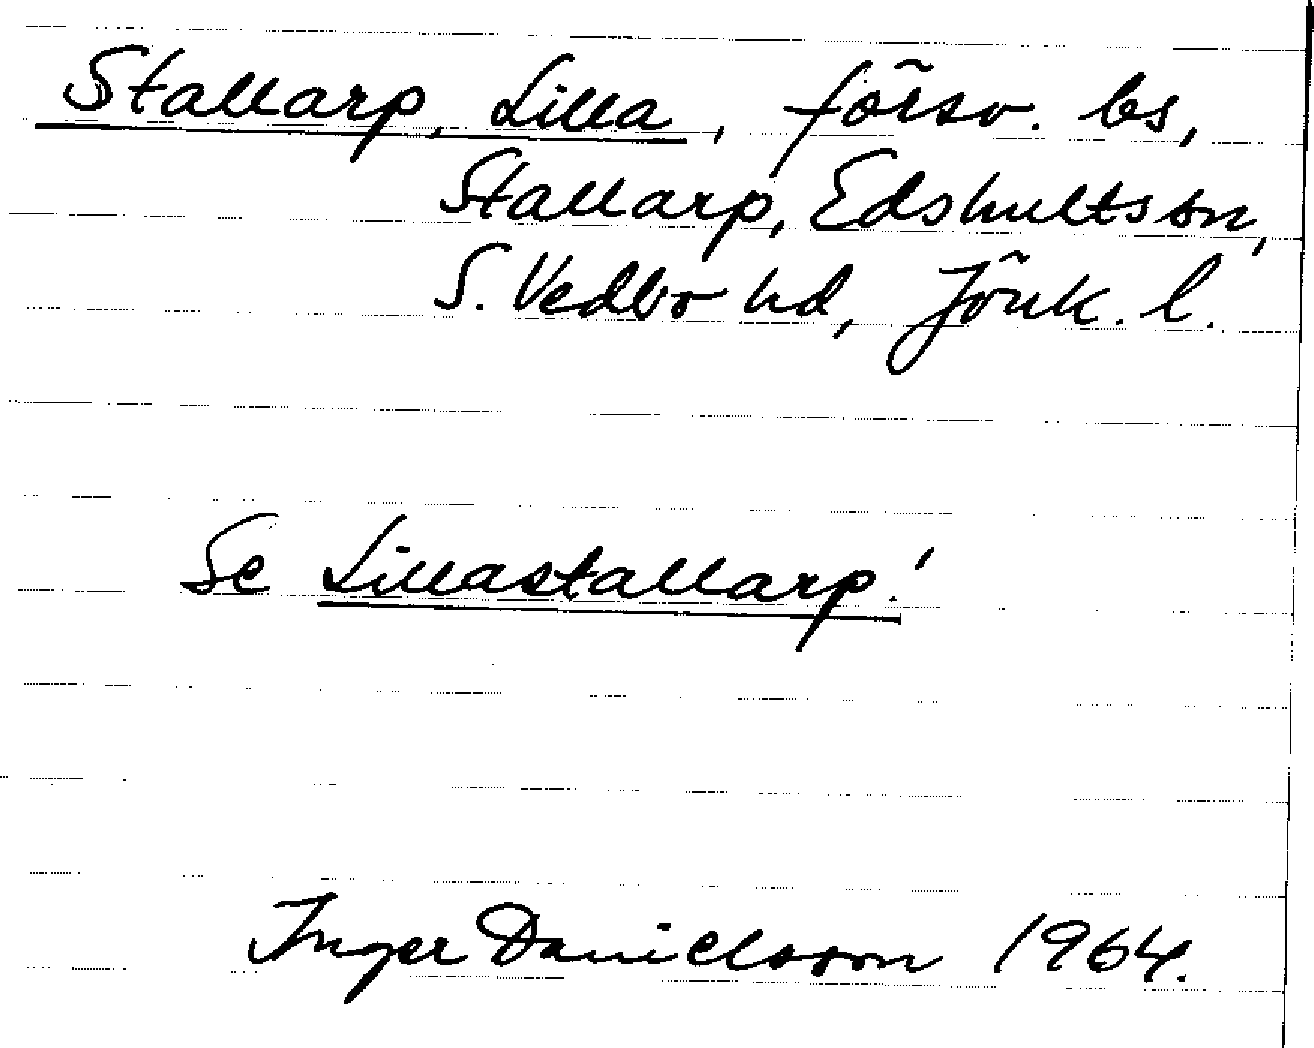 Stallarp, Lilla, försv. bs,
Stallarp, Edshults sn,
S. Vedbo hd, Jönk. l.
Se Lillastallarp!
Inger Danielsson 1964.